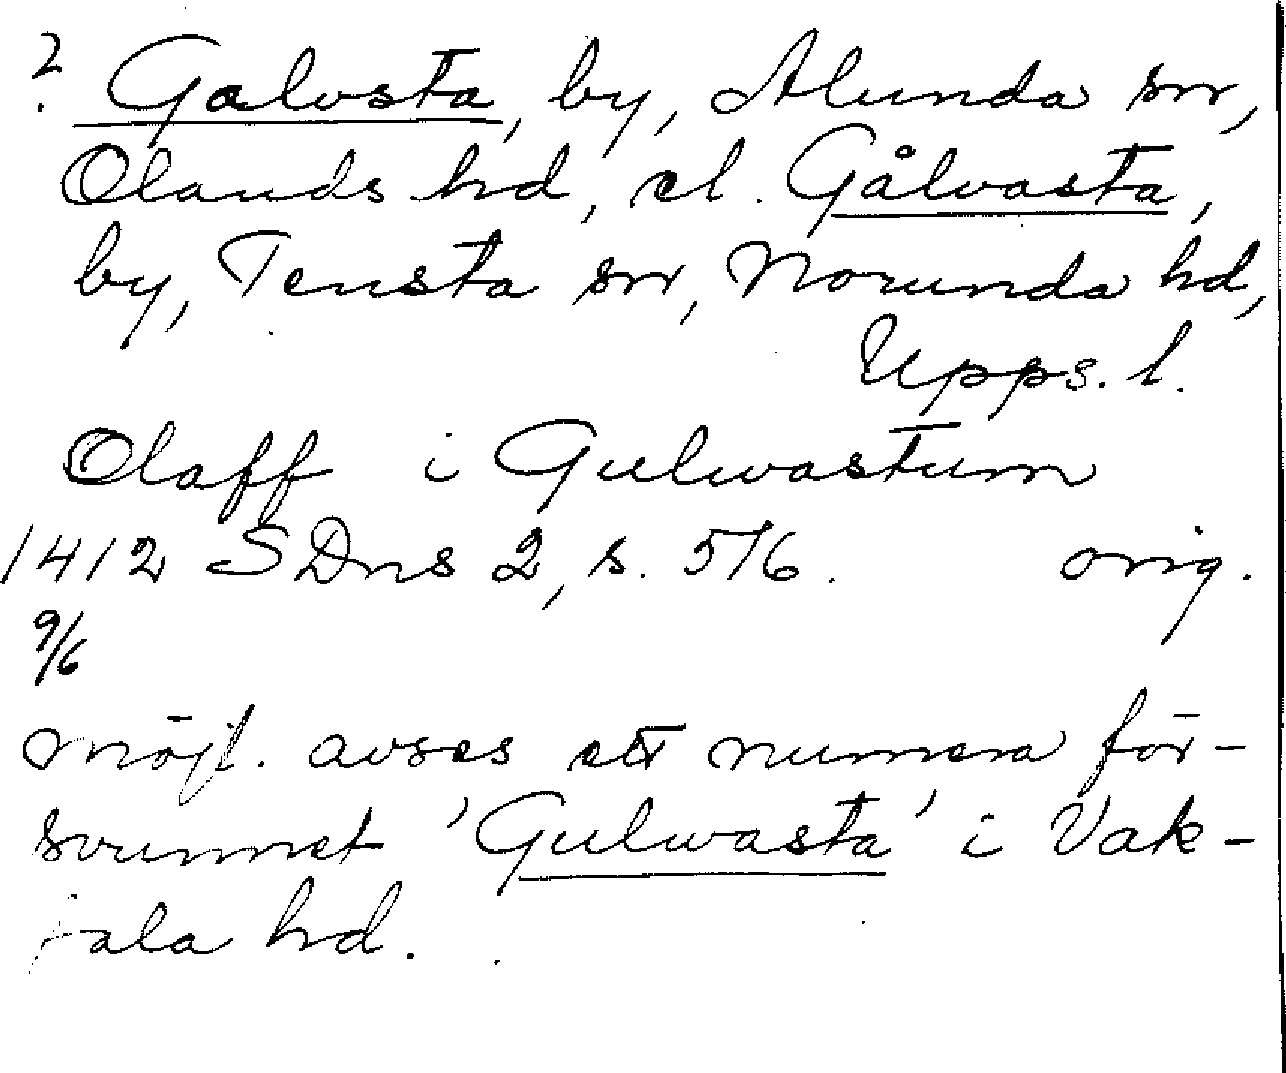 ? Galvsta, by, Alunda sn,
Olands hd, el. Gålvasta,
by, Tensta sn, Norunda hd,
Upps. l.
Olaff i Gulwastum
1412 SDns 2, s. 576. orig.
9/6
möjl. avses ett numera för-
svunnet 'Gulwasta' i Vak-
sala hd.